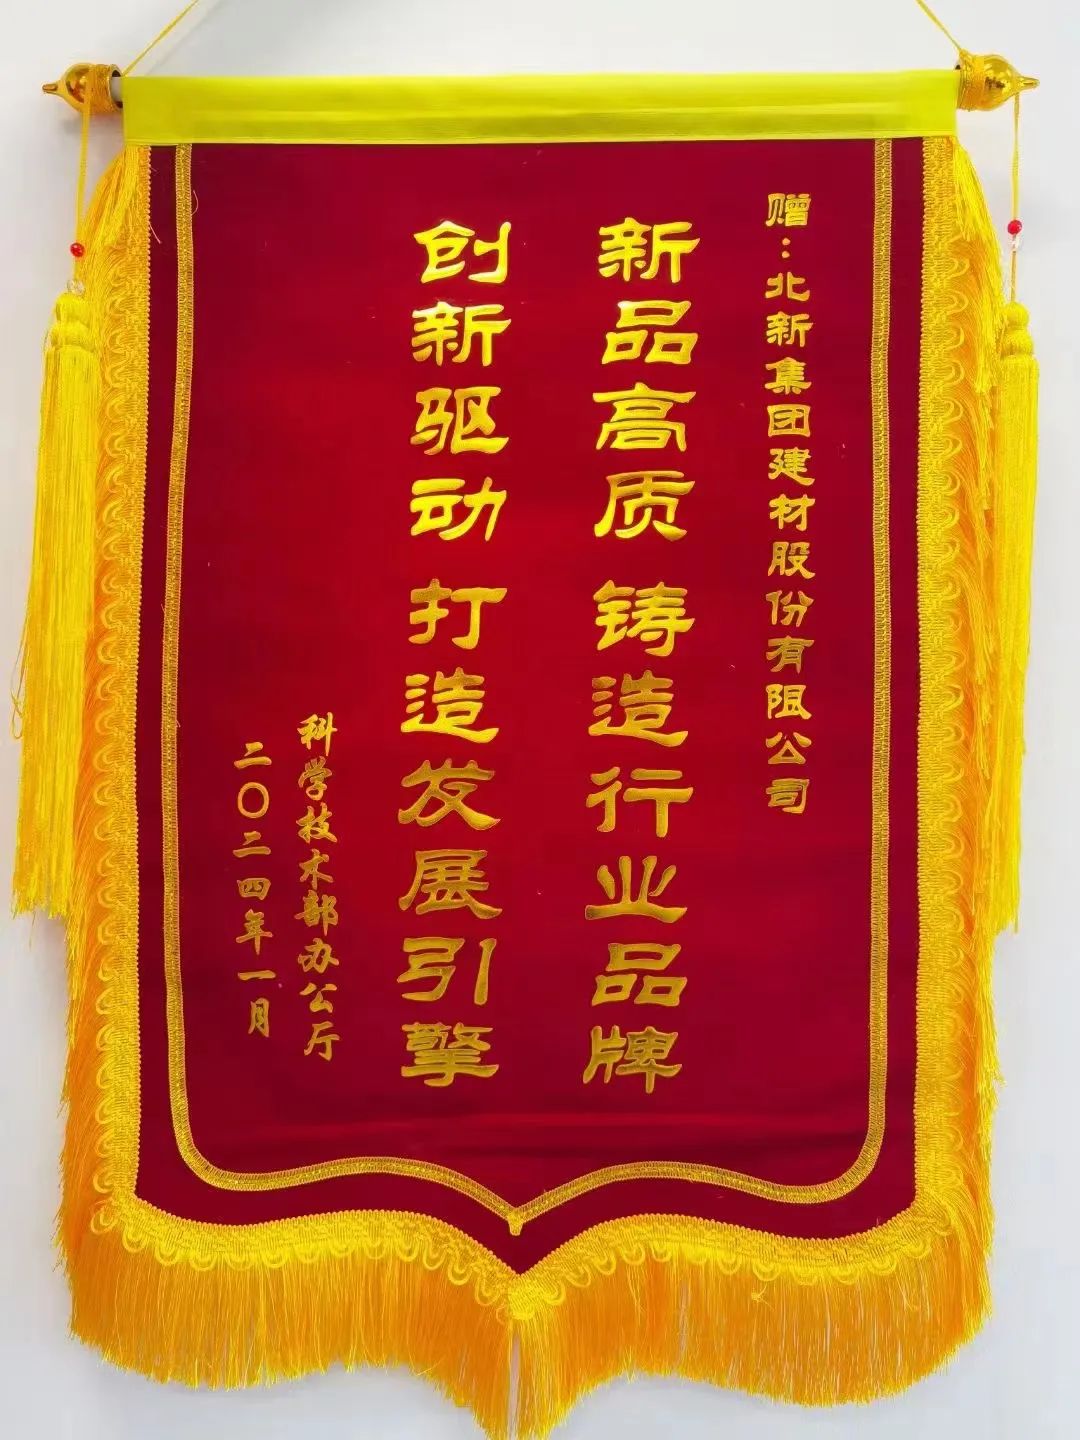 赠：北新集团建材股份有限公司
新品高质 铸造行业品牌
创新驱动 打造发展引擎
科学技术部办公厅
二〇二四年一月